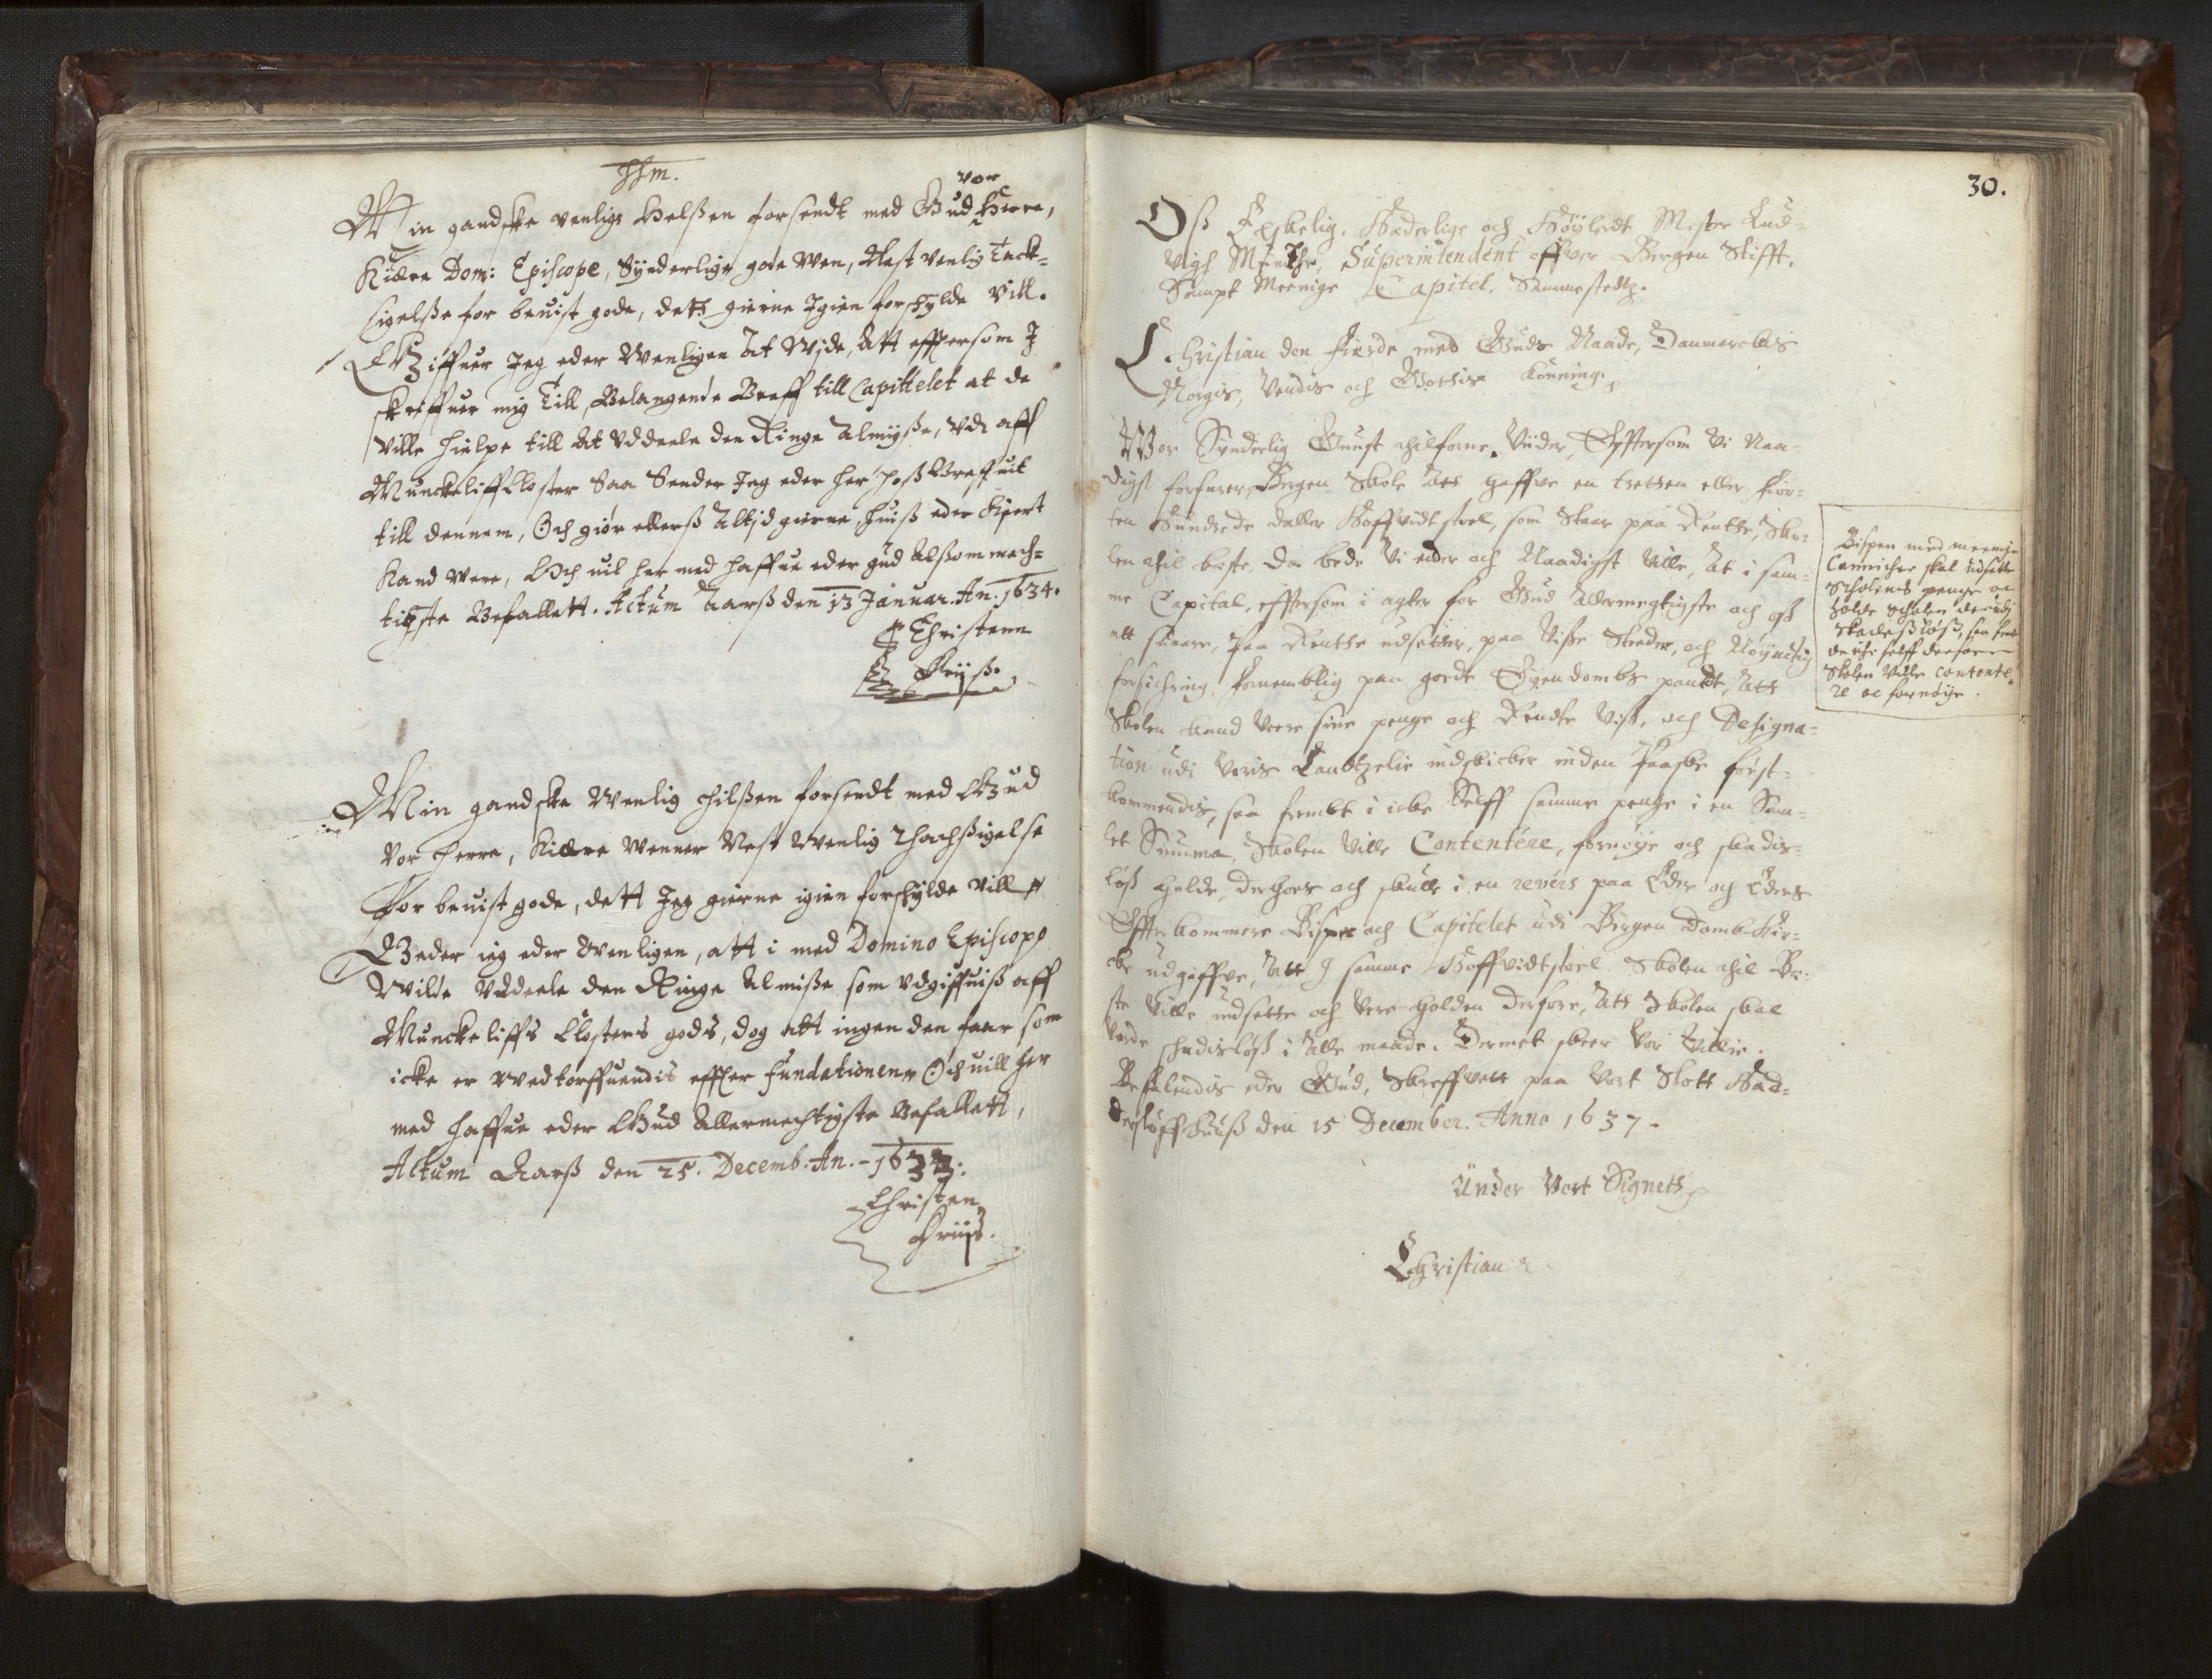 Jhm.
vor
Min gandske venlige Helssen forsendt med Gud Herre,
Kiære Dom: Episcope, Synderlige gode Wen, Nest venlig Tack-
sigelsse for beuist gode, dett gierne Igien forschylde Vill.
Giffuer Jeg eder Wenligen At Wide, Att effterson J
skriffuer mig Till, Belangende Breff till Capittelet at de
Ville hielpe till At Vddeele den Ringe Almysse, Vdi aff
Munckeliff Closter Saa Sender Jeg eder her hoss Breffuit
till dennem, Och giør ellerss Altid gierne huiss eder kiert
Kand were, Och uil her med haffue eder gud Alssommech-
tigste Befallett. Actum Aarss den 13 Januar. An. 1634.
Christenn
Kruss.
Min gandske Wenlig Hilssen forsendt med Gud
Vor Herre, Kiære Wenner Nest Wenlig Thachsigelse
For beuist gode, dett Jeg gierne igien forschylde Vill
Beder ieg eder Wenligen, att i med Domino Episcopo
Wilde Vddeele den Ringe Almisse som Vdgiffuiss aff
Munckeliffs Closters gods, dog att ingen den faar som
icke er Wedtorffuendis effter Fundationen Och uill her
med haffue eder Gud Allermechtigste Befallett,
Actum Aarss den 25. Decemb. An. 1633:
Christen
Kruss.
30.
Oss Elskelig, Hæderlige och Høylerdt Mester Lud-
vigh Munthe, Superintendent offver Bergen Stifft,
Sampt Meenige Capitel, Sammestedtz.
Christian den Fierde med Guds Naade, Danmarckis
Norgis, Vendis och Gothis Konning.
Wor Synderlig Gunst tilforne. Vider, Effterson Vi Naa-
digst forfarer, Bergen Skole Att haffve en tretten eller fior-
ten Hundrede daller Hoffvidt stoel, som Staar paa Rentte, Sko-
len thil beste, Da bede Vi eder och Naadigst Ville, At i sam-
me Capital, effterson i agter for Gud Allermegtigste och oss
att suare, Paa Rentte udsetter, paa Visse Steder, och Nøyactig
forsichring, fornemblig paa goede Eyendombs pandt, Att
Skolen kand Vere sine penge och Rendte Viss, och Designa-
tion udi Voris Cantzelie indskicker inden Paaske først-
kommendis, saa frembt i icke Selff samme penge i en Sam-
let Summa, Skolen Ville Contentére, fornøye och skadis-
løss holde, Derhoes och skulle i en revérs paa Eder och Eders
Effterkommere Bisper och Capitelet udi Bergen Domb Kir-
cke udgiffve, Att J samme Hoffvidtstoel Skolen thil Be-
ste Ville udsette och Vere holden derfore, Att Skolen skal
Vorde schadisløss i Alle maade. Dermet skeer Vor Villie.
Befalendis eder Gud, Skreffvett paa Vort Slott Had-
dersløffhuuss den 15 December. Anno 1637.
Under Vort Signett
Christian
Bispen med meenige
Cannicher skal udsette
Scholens penge oc
holde Scholen derudi
Skadessløss, saa frem
de icke selff derfore
Skolen Ville contente-
re oc fornøye.